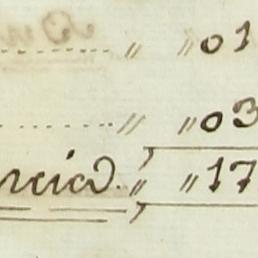 " " 01
" " 03
ncia " " 17